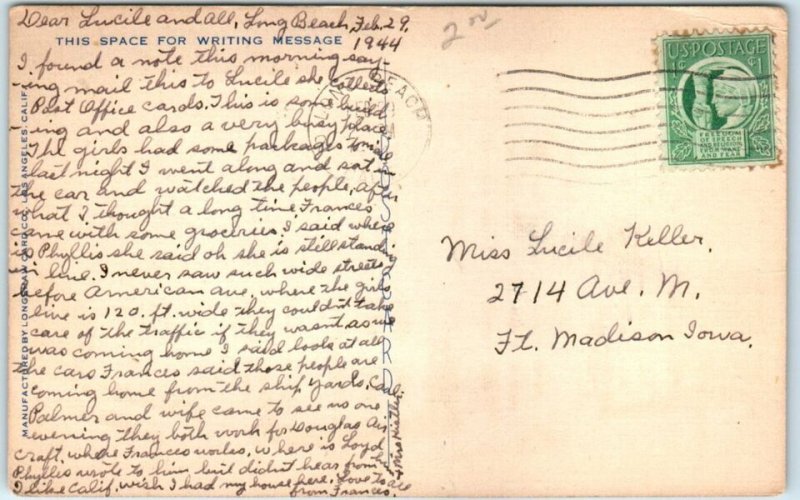 Dear Lucile and all, Long Beach, Feb. 29,
1944
THIS SPACE FOR WRITING MESSAGE
I found a note this morning say-
ing mail this to Lucile she collects
Post Office cards. This is some build
ing and also a very busy place.
The girls had some packages to mail
last night I went along and sat in
the car and watched the people, after
what I thought a long time Frances
came with some groceries. I said where
is Phyllis she said oh she is still standing
in line. I never saw such wide streets
before American ave, where the girls
live is 120. ft. wide they couldn't take
care of the traffic if they wasnt, as we
was coming home I said look at all
the cars Frances said those people are
coming home from the ship yards. Carl
Palmer and wife came to see us one
evening they both work for Douglas Air
craft, where Frances works, where is Loyd
Phyllis wrote to him but didn't hear from
I like Calif. wish I had my house here. Love to all
from Frances.
MANUFACTURED BY LONGSHAW CARD CO., LOS ANGELES, CALIF.
2 00
BEACH
U.S. POSTAGE
1¢ ¢1
FREEDOM
OF SPEECH
AND RELIGION,
FROM WANT
AND FEAR
Miss Lucile Keller,
2714 Ave. M.
Ft. Madison Iowa.